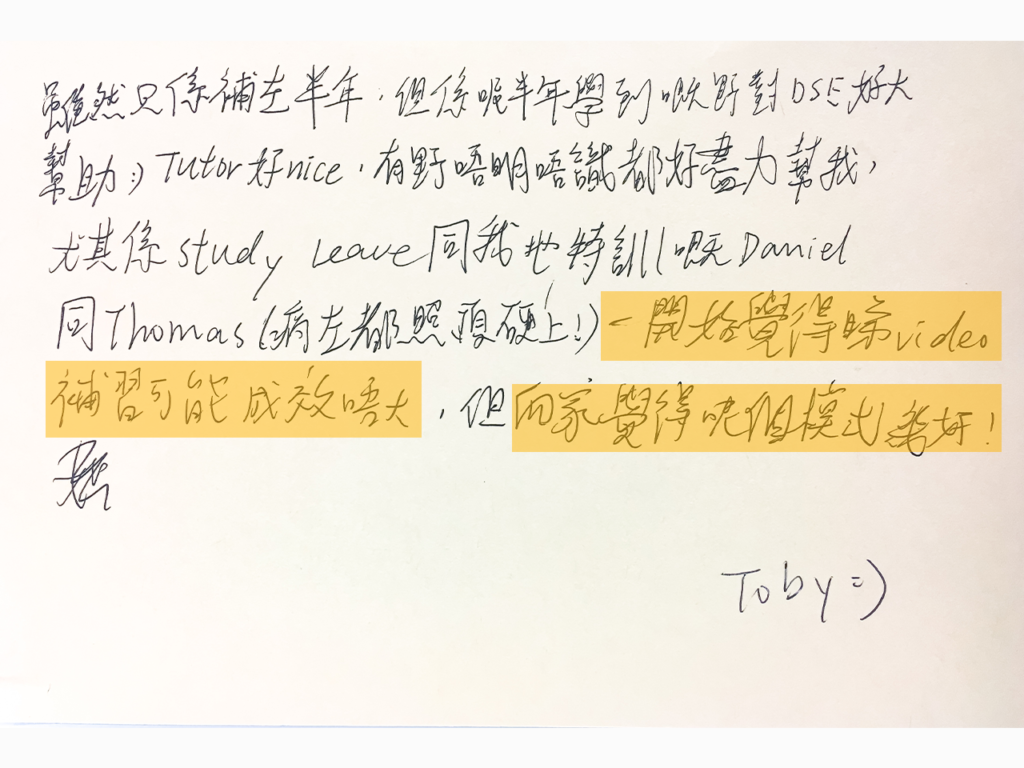 雖然只係補左半年，但係呢半年學到嘅野對DSE好大
幫助:) Tutor好nice，有野唔明唔識都好盡力幫我，
尤其係study leave同我地特訓嘅Daniel
同Thomas(病左都照頂硬上!)一開始覺得睇video
補習可能成效唔大，但而家覺得呢個模式幾好!
Toby=)